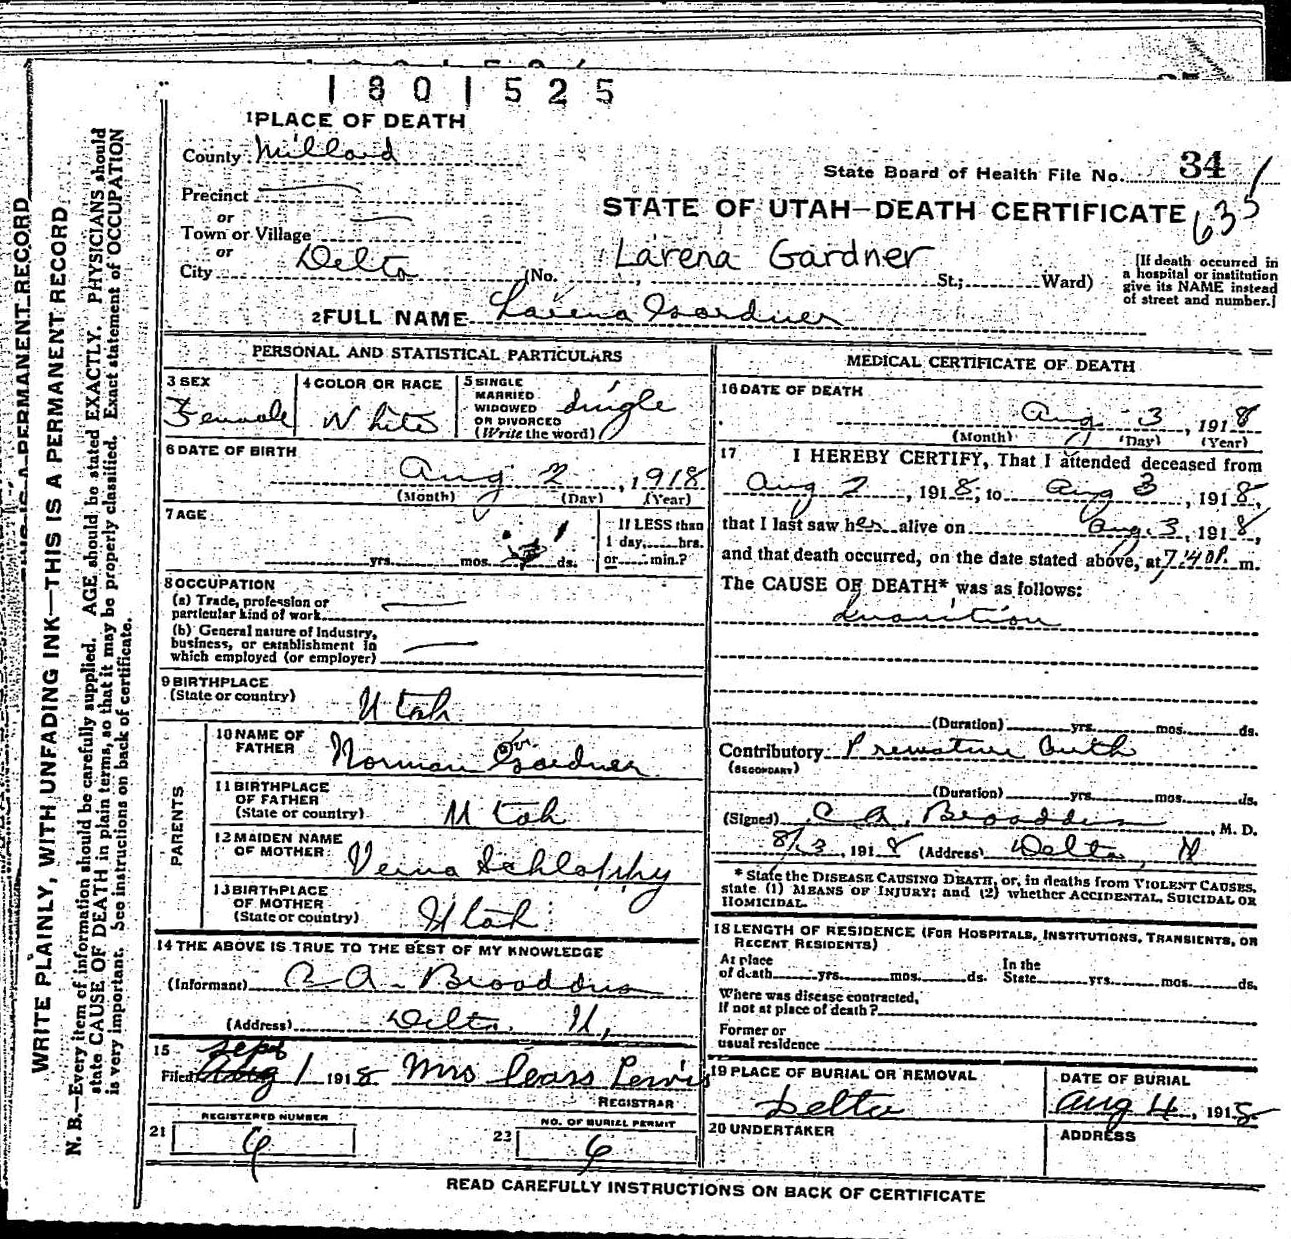 1801525
1 PLACE OF DEATH
County Millard
State Board of Health File No. 34
635
Precinct
or
Town or Village
or
City Delta
STATE OF UTAH—DEATH CERTIFICATE
Larena Gardner
(No. St.; Ward)
[If death occurred in
a hospital or institution
give its NAME instead
of street and number.]
2 FULL NAME Larena Gardner
PERSONAL AND STATISTICAL PARTICULARS
3 SEX
Female
4 COLOR OR RACE
White
5 SINGLE
MARRIED
WIDOWED
OR DIVORCED
(Write the word)
Single
6 DATE OF BIRTH
Aug 2, 1918
(Month) (Day) (Year)
7 AGE
yrs. mos. 1 ds.
If LESS than
1 day, hrs.
or min.?
8 OCCUPATION
(a) Trade, profession or
particular kind of work
(b) General nature of Industry,
business, or establishment in
which employed (or employer)
9 BIRTHPLACE
(State or country)
Utah
PARENTS
10 NAME OF
FATHER
Norman Gardner
11 BIRTHPLACE
OF FATHER
(State or country)
Utah
12 MAIDEN NAME
OF MOTHER
Verna Schlappy
13 BIRTHPLACE
OF MOTHER
(State or country)
Utah
14 THE ABOVE IS TRUE TO THE BEST OF MY KNOWLEDGE
(Informant) C A. Broaddus
(Address) Delta U,
15
Sept
Filed Aug 1 1918 Mrs
REGISTRAR
21
REGISTERED NUMBER
6
22
NO. OF BURIAL PERMIT
6
MEDICAL CERTIFICATE OF DEATH
16 DATE OF DEATH
Aug 3, 1918
(Month) (Day) (Year)
17 I HEREBY CERTIFY, That I attended deceased from
Aug 2, 1918, to Aug 3, 1918,
that I last saw her alive on Aug. 3, 1918,
and that death occurred, on the date stated above, at 7:40 P. m.
The CAUSE OF DEATH* was as follows:
Inanition
(Duration) yrs. mos. ds.
Contributory Premature birth
(SECONDARY)
(Duration) yrs. mos. ds.
(Signed) C. A. Broaddus, M. D.
8/3, 1918 (Address) Delta, U
* State the DISEASE CAUSING DEATH, or, in deaths from VIOLENT CAUSES,
state (1) MEANS OF INJURY; and (2) whether ACCIDENTAL, SUICIDAL OR
HOMICIDAL.
18 LENGTH OF RESIDENCE (FOR HOSPITALS, INSTITUTIONS, TRANSIENTS, OR
RECENT RESIDENTS)
At place
of death yrs. mos. ds.
In the
State yrs. mos. ds.
Where was disease contracted,
If not at place of death?
Former or
usual residence
19 PLACE OF BURIAL OR REMOVAL
Delta
DATE OF BURIAL
Aug 4, 1918
20 UNDERTAKER
ADDRESS
READ CAREFULLY INSTRUCTIONS ON BACK OF CERTIFICATE
THIS IS A PERMANENT RECORD
WRITE PLAINLY, WITH UNFADING INK—THIS IS A PERMANENT RECORD
N. B.—Every item of information should be carefully supplied. AGE should be stated EXACTLY. PHYSICIANS should
state CAUSE OF DEATH in plain terms, so that it may be properly classified. Exact statement of OCCUPATION
is very important. See instructions on back of certificate.